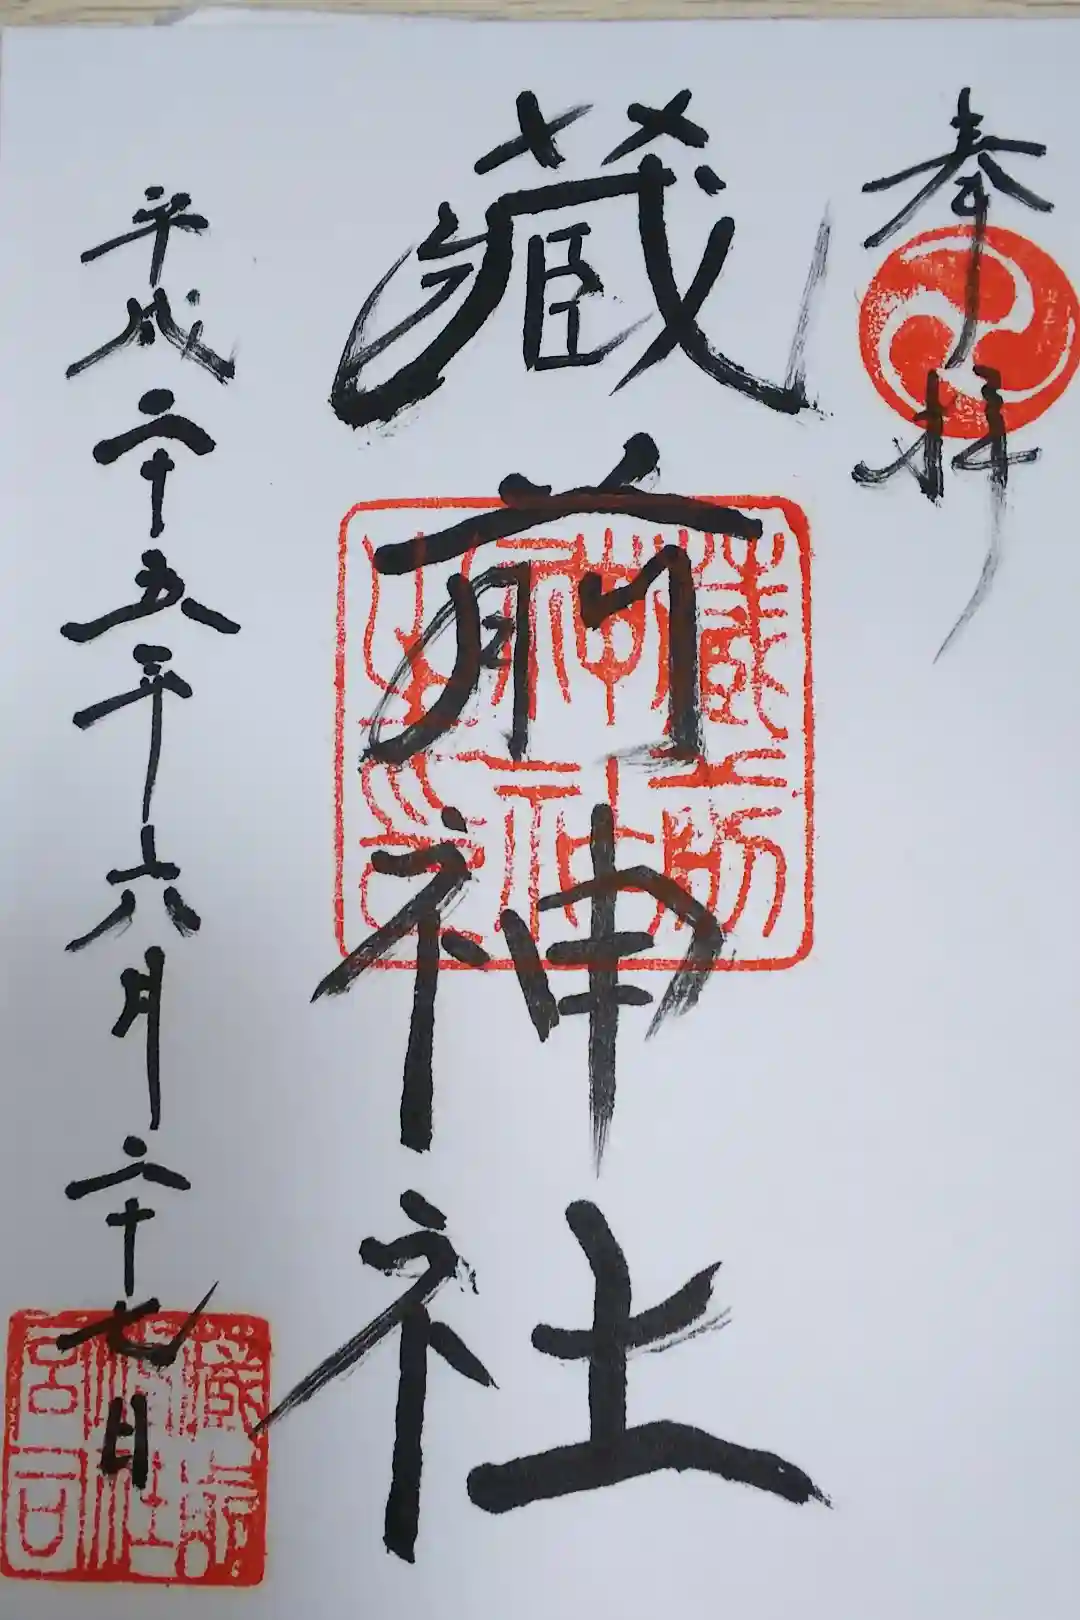 奉拝
藏前神社
平成二十五年六月二十七日
藏前
神社
之印
蔵前
神社
宮司